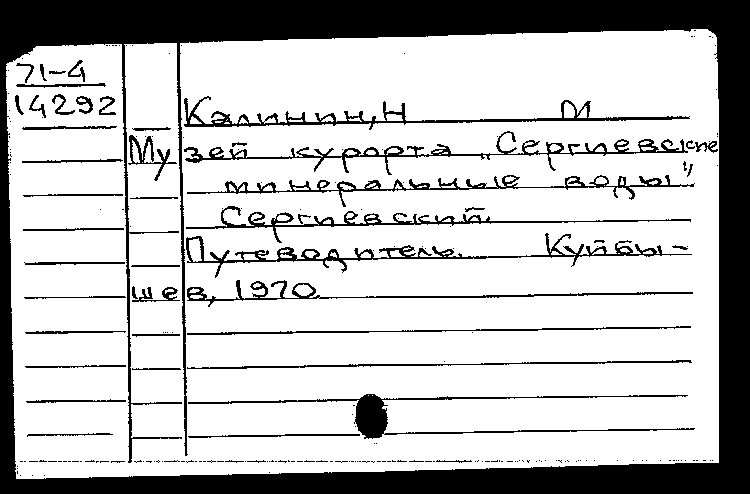 71-4
14292
Калинин, Н М
Музей курорта „Сергиевские
минеральные воды"
Сергиевский.
Путеводитель. Куйбы-
шев, 1970.